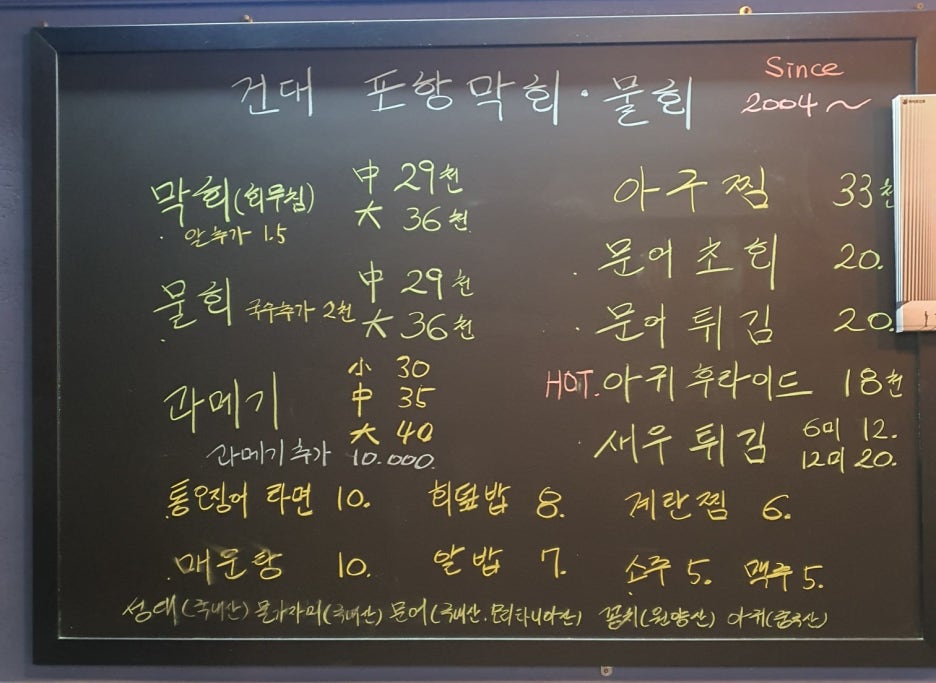 건대 포항막회·물회
Since
2004~
막회(회무침) 中 29천
大 36천
알추가 1.5
물회 국수추가 2천 中 29천
大 36천
과메기 小 30
中 35
大 40
과메기추가 10.000
아구찜 33천
문어초회 20.
문어튀김 20.
HOT. 아귀후라이드 18천
새우튀김 6미 12.
12미 20.
통오징어라면 10. 회덮밥 8. 계란찜 6.
매운탕 10. 알밥 7. 소주 5. 맥주 5.
성대(국내산) 물가자미(국내산) 문어(국내산.모리타니아산) 꽁치(원양산) 아귀(중국산)